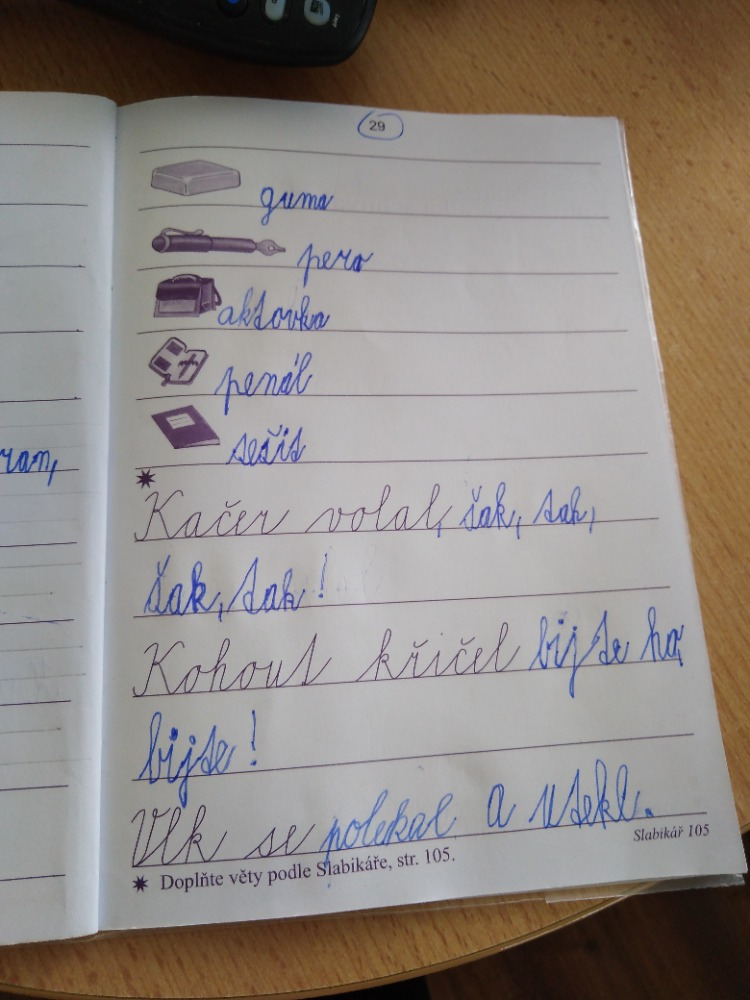 29
guma
pero
aktovka
penál
sešit
ran,
Kačer volal, šak, tak,
šak, tak!
Kohout křičel bijte ho,
bijte!
Vlk se polekal a utekl.
Slabikář 105
Doplňte věty podle Slabikáře, str. 105.